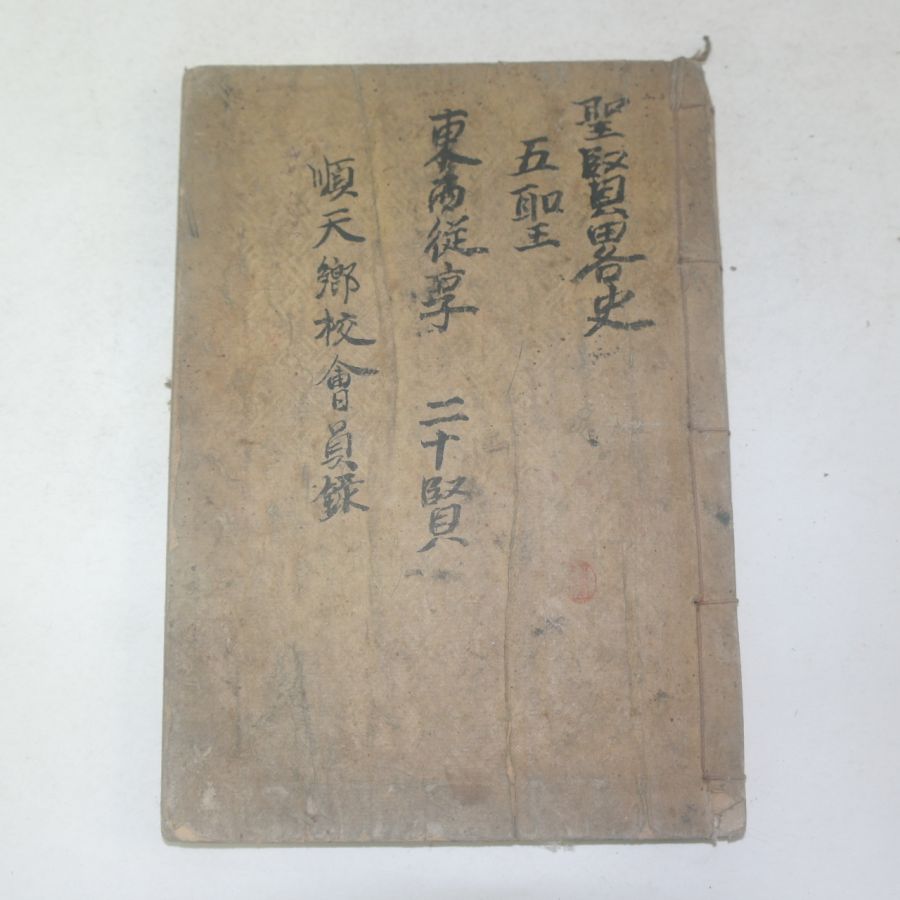 聖賢畧史
五聖
東西従享 二十賢
順天鄉校會員錄